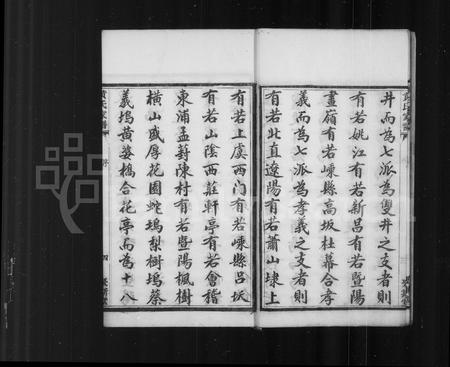 井而為七派為雙井之支者則
有若姚江有若新昌有若暨陽
畫嶺有若嵊縣高坂杜幕合孝
義而為七派為孝義之支者則
有若此直遼陽有若蕭山埭上
有若上虞西門有若嵊縣呂坂
有若山陰西莊軒亭有若會稽
東浦孟葑陳村有若暨陽楓樹
橫山盛厚花園蛇塢梨樹塢蔡
義塢黃婆橋合花亭而為十八
序
四